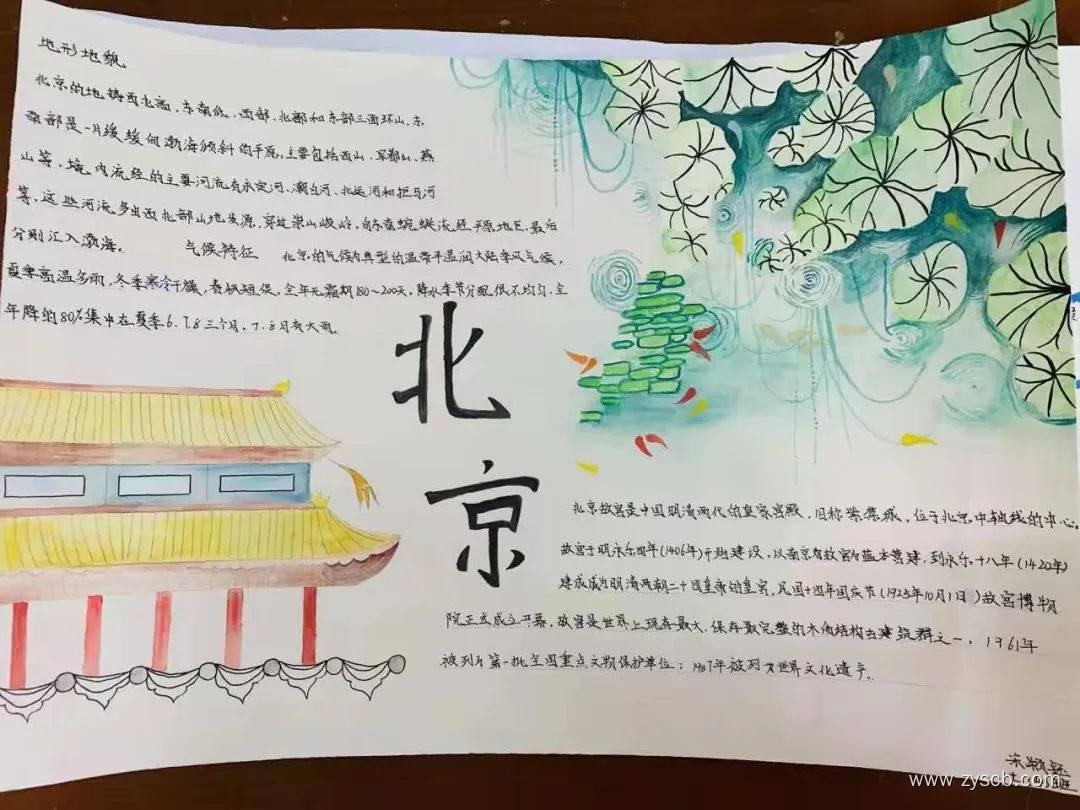 地形地貌
北京的地势西北高、东南低,西部、北部和东部三面环山,东
南部是一片缓缓向渤海倾斜的平原,主要包括西山、军都山、燕
山等,境内流经的主要河流有永定河、潮白河、北运河和拒马河
等,这些河流多由西北部山地发源,穿过崇山峻岭,向东南蜿蜒流经平原地区,最后
分别汇入渤海。 气候特征 北京的气候为典型的温带半湿润大陆季风气候,
夏季高温多雨,冬季寒冷干燥,春秋短促,全年无霜期180~200天,降水季节分配很不均匀,全
年降的80%集中在夏季6.7.8三个月、7、8月有大雨。
北
京
北京故宫是中国明清两代的皇家宫殿,旧称紫禁城,位于北京中轴线的中心,
故宫于明永乐四年(1406年)开始建设,以南京故宫为蓝本营建,到永乐十八年(1420年)
建成成为明清两朝二十四皇帝的皇宫,民国十四年国庆节(1925年10月1日)故宫博物
院正式成立开幕,故宫是世界上现存最大、保存最完整的木质结构古建筑群之一,1961年
被列为第一批全国重点文物保护单位;1987年被列为世界文化遗产。
宋颖
www.zyscb.com